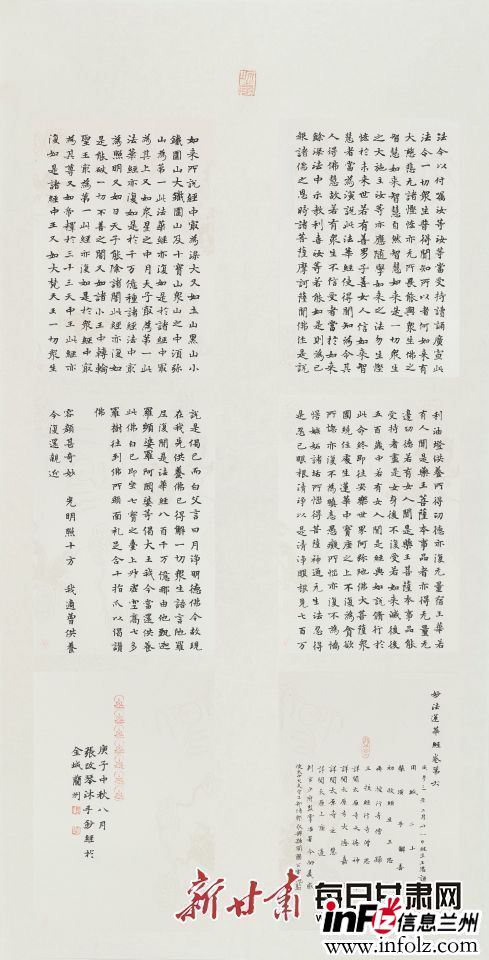 法今以付囑汝等汝等當受持讀誦廣宣此
法令一切眾生普得聞知所以者何如來有
大慈悲无諸慳悋亦无所畏能與眾生佛之
智慧如來智慧自然智慧如來是一切眾生
之大施主汝等亦應隨學如來之法勿生慳
悋於未來世若有善男子善女人信如來智
慧者當為演說此法華經使得聞知為令其
人得佛慧故若有眾生不信受者當於如來
餘深法中示教利喜汝等若能如是則為已
報諸佛之恩時諸菩薩摩訶薩聞佛作是說
如來所說經中最為深大又如土山黑山小
鐵圍山大鐵圍山及十寶山眾山之中須彌
山為第一此法華經亦復如是於諸經中最
為其上又如眾星之中月天子最為第一此
法華經亦復如是於千万億種諸經法中最
為照明又如日天子能除諸闇此經亦復如
是能破一切不善之闇又如諸小王中轉輪
聖王最為第一此經亦復如是於眾經中最
為其尊又如帝釋於三十三天中王此經亦
復如是諸經中王又如大梵天王一切眾生
利油燈供養所得功德亦復无量宿王華若
有人聞是藥王菩薩本事品者亦得无量无
邊功德若有女人聞是藥王菩薩本事品能
受持者盡是女身後不復受若如來滅後後
五百歲中若有女人聞是經典如說修行於
此命終即往安樂世界阿彌陁佛大菩薩眾
圍繞住處生蓮華中寶座之上不復為貪欲
所惱亦復不為瞋恚愚癡所惱亦復不為憍
慢嫉妬諸垢所惱得菩薩神通无生法忍得
是忍已眼根清淨以是清淨眼根見七百万
說是偈已而白父言日月淨明德佛今故現
在我先供養佛已得解一切眾生語言陁羅
尼復聞是法華經八百千万億那由他甄迦
羅頻婆羅阿閦婆等偈大王我今當還供養
此佛白已即坐七寶之臺上昇虛空高七多
羅樹往到佛所頭面礼足合十指爪以偈讚
佛
容顏甚奇妙 光明照十方 我適曾供養
今復還親近
妙法蓮華經卷第六
用紙二十
裝潢手解善
初校經生王思
再校經行寺僧
三校經行寺僧思
詳閱太原寺大德
詳閱太原寺大德嘉
詳閱太原寺主慧
詳閱太原上座道
庚子中秋八月
張改琴沐手敬經於
金城蘭州
新甘肃
每日甘肃网
infLZ 信息兰州
www.infolz.com